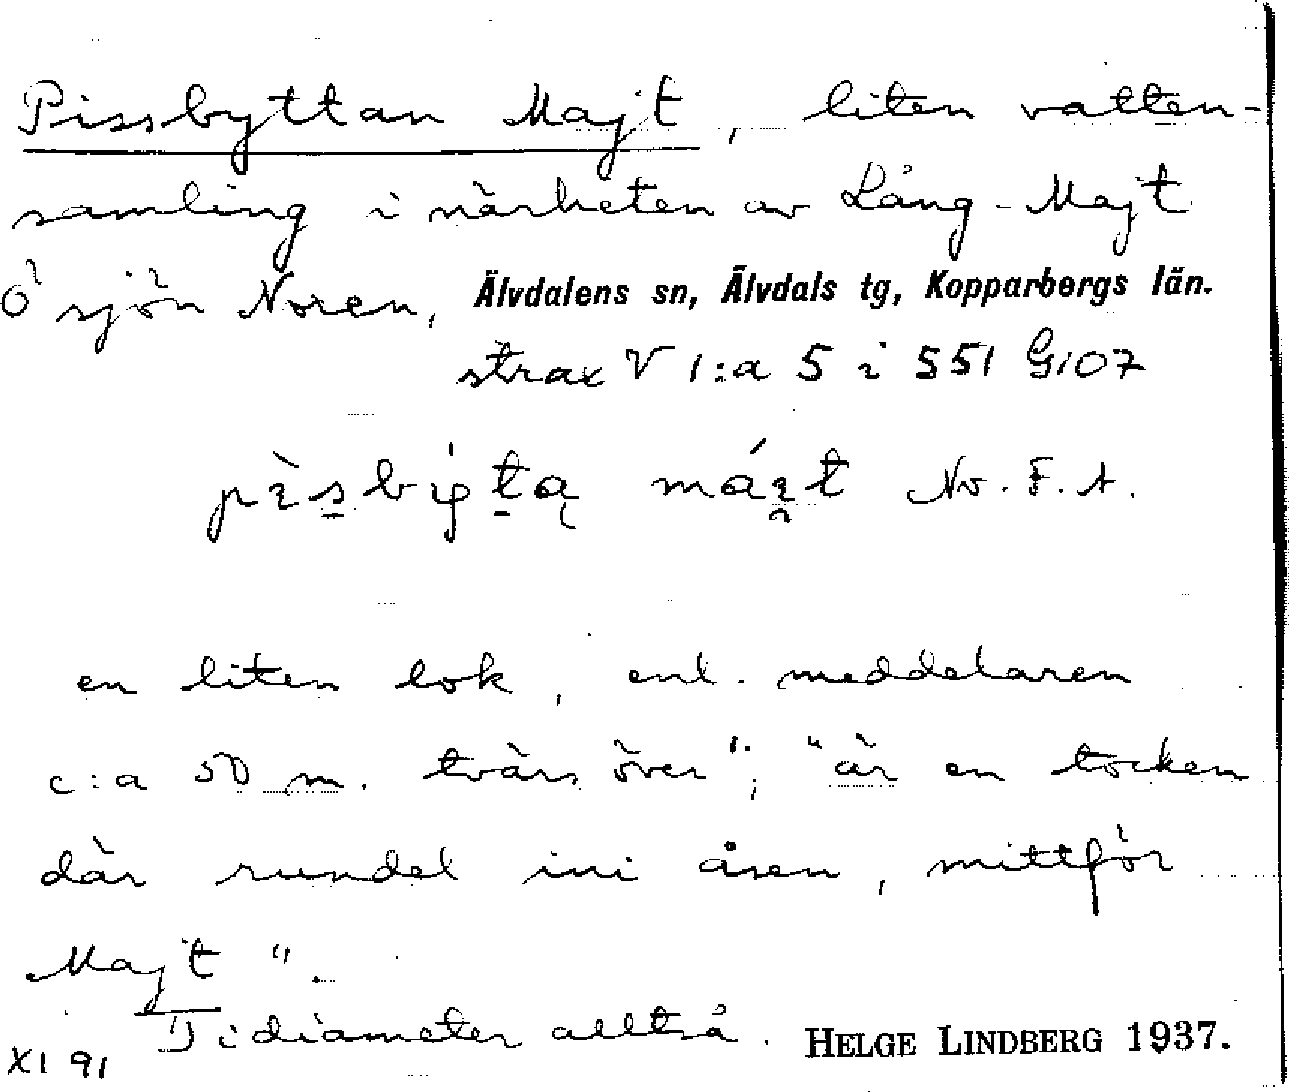 Pissbyttan Majt, liten vatten-
samling i närheten av Lång-Majt
Ö sjön Noren, Älvdalens sn, Älvdals tg, Kopparbergs län.
strax V 1:a 5 i 551 G107
No. F. A.
en liten lok, enl. meddelaren
c:a 50 m. tvärs över"; "är en tocken
där rundel ini åsen, mittför
Majt".
i diameter alltså. HELGE LINDBERG 1937.
XI 91